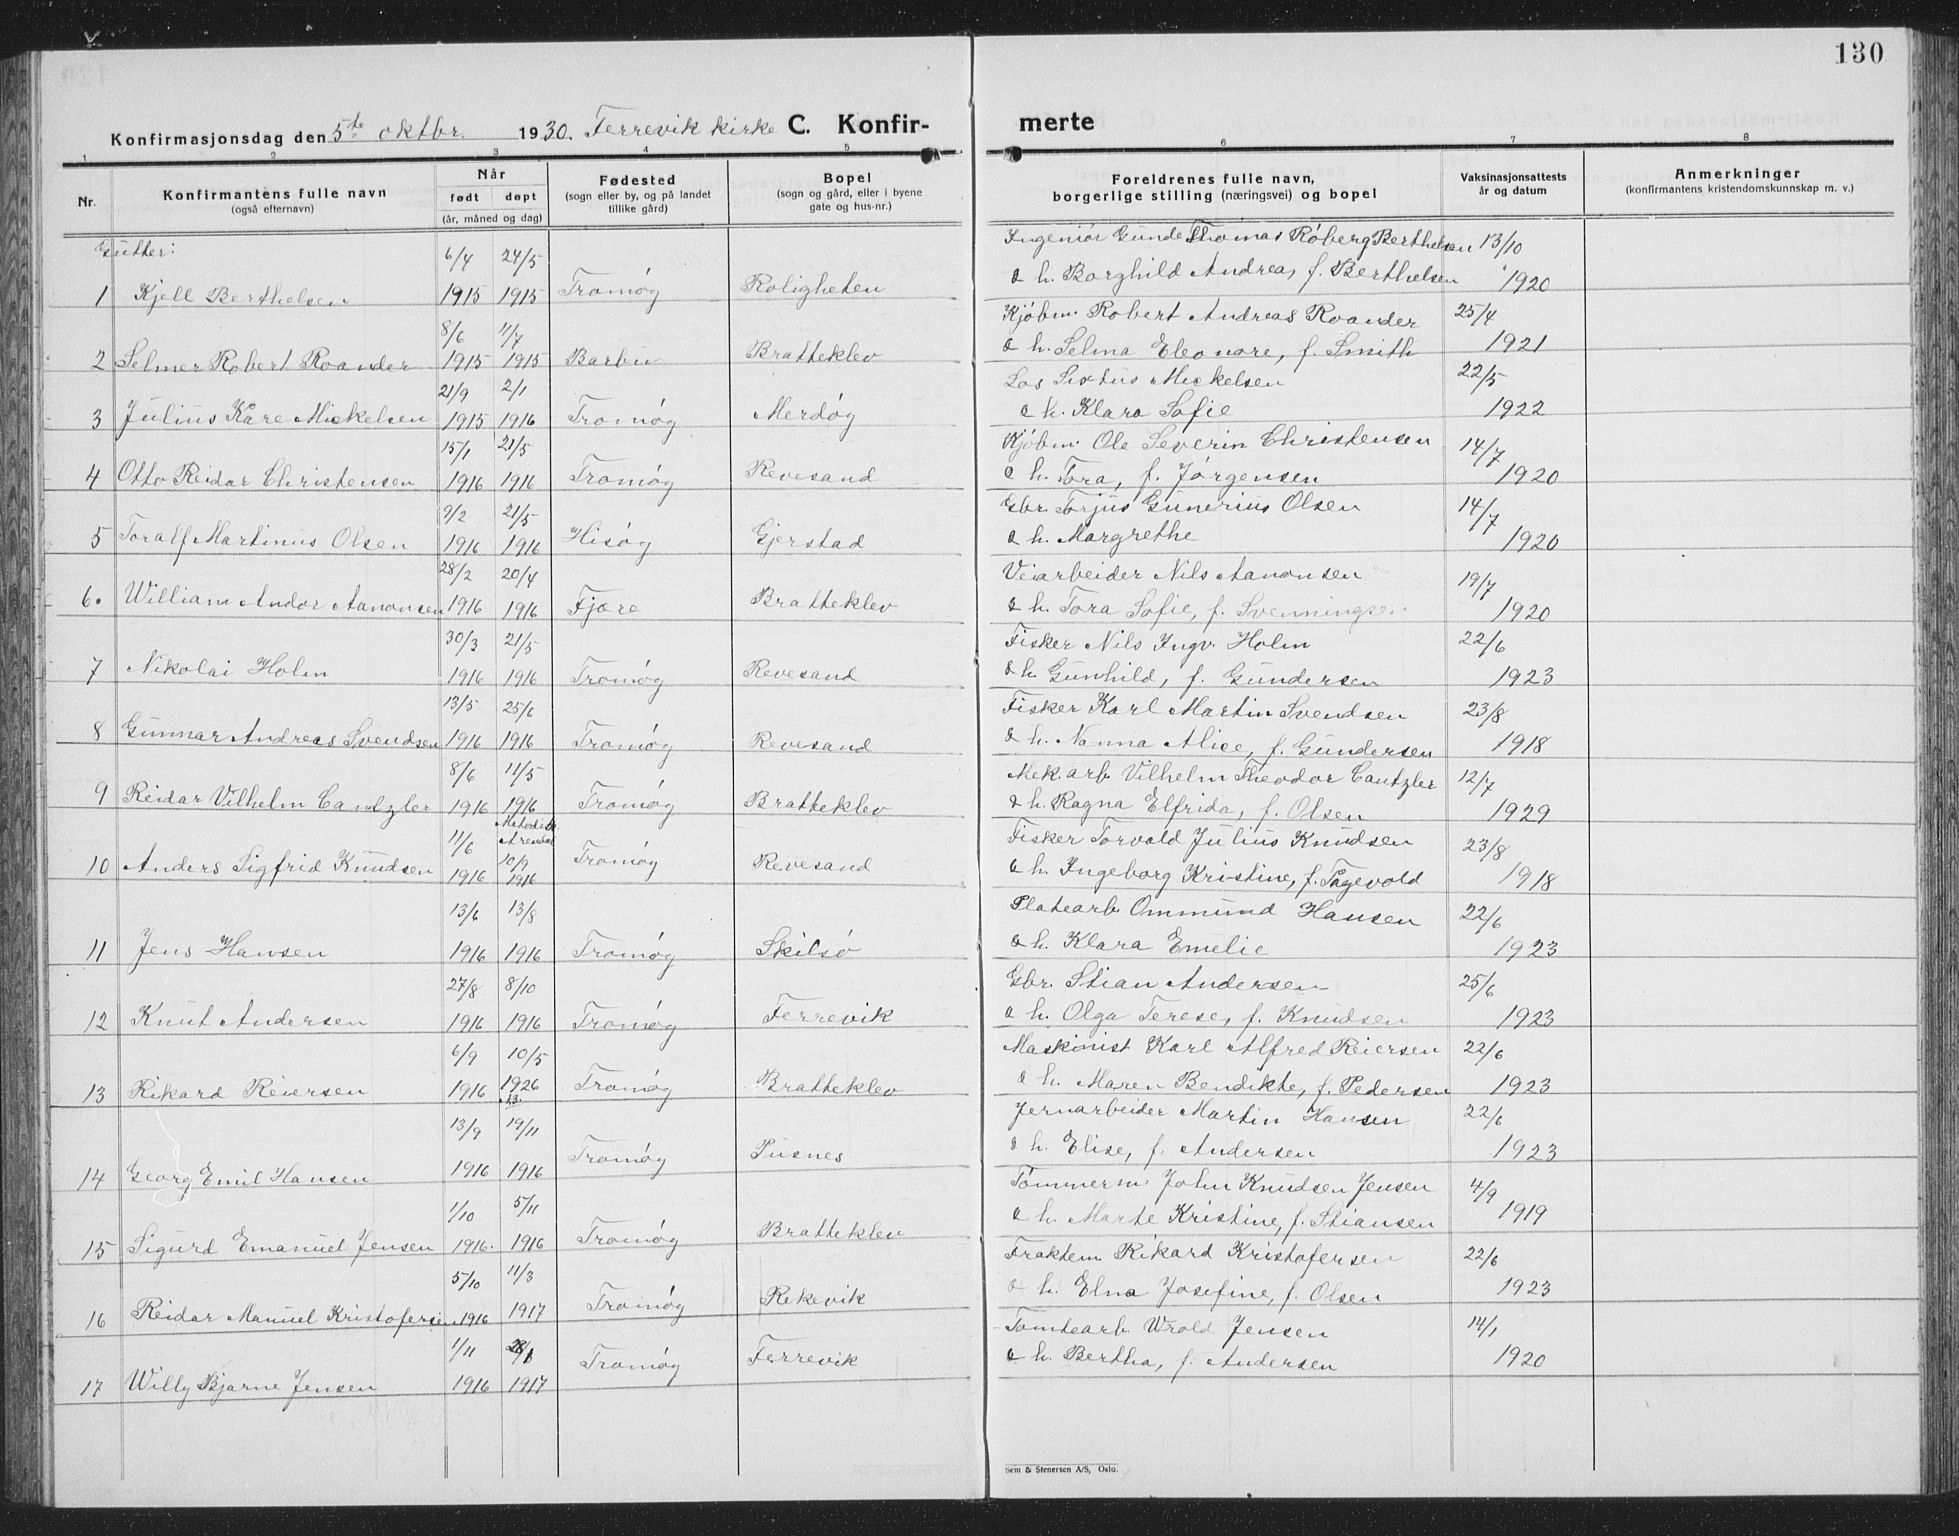 130
Konfirmasjonsdag den 5te oktbr. 1930. Færrevik kirke C. Konfir-
merte
1 2 3 4 5 6 7 8
Nr.
Konfirmantens fulle navn
(også efternavn)
Når
født døpt
(år, måned og dag)
Fødested
(sogn eller by, og på landet
tillike gård)
Bopel
(sogn og gård, eller i byene
gate og hus-nr.)
Foreldrenes fulle navn,
borgerlige stilling (næringsvei) og bopel
Vaksinasjonsattests
år og datum
Anmerkninger
(konfirmantens kristendomskunnskap m. v.)
Gutter: 6/4 24/5 Ingeniør Gunde Thomas Roberg Berthelsen 13/10
1 Kjell Berthelsen 1915 1915 Tromøy Roligheten & h. Borghild Andrea, f. Berthelsen 1920
8/6 11/7 Kjøbm. Robert Andreas Roander 25/4
2 Selmer Robert Roander 1915 1915 Barbu Bratteklev & h. Selma Eleonore, f. Smith 1921
21/9 2/1 Los Sixtus Mickelsen 22/5
3 Julius Kåre Mickelsen 1915 1916 Tromøy Merdøy & h. Klara Sofie 1922
15/1 21/5 Kjøbm. Ole Severin Christensen 14/7
4 Otto Reidar Christensen 1916 1916 Tromøy Revesand & h. Tora, f. Jørgensen 1920
9/2 21/5 Gbr. Torjus Gunerius Olsen 14/7
5 Toralf Martinus Olsen 1916 1916 Hisøy Gjerstad & h. Margrethe 1920
28/2 20/4 Veiarbeider Nils Aanonsen 19/7
6. William Andor Aanonsen 1916 1916 Fjære Bratteklev & h. Tora Sofie, f. Svenningsen 1920
30/3 21/5 Fisker Nils Ingv. Holm 22/6
7 Nikolai Holm 1916 1916 Tromøy Revesand & h. Gunhild, f. Gundersen 1923
13/5 25/6 Fisker Karl Martin Svendsen 23/8
8 Gunnar Andreas Svendsen 1916 1916 Tromøy Revesand & h. Nanna Alice, f. Gundersen 1918
8/6 11/5 Mek. arb. Vilhelm Theodor Cantzler 12/7
9 Reidar Vilhelm Cantzler 1916 1916 Tromøy Bratteklev & h. Ragna Elfrida, f. Olsen 1929
11/6 Arendal 10/9 Fisker Torvald Julius Knudsen 23/8
10 Anders Sigfrid Knudsen 1916 1916 Tromøy Revesand & h. Ingeborg Kristine, f. Fagevold 1918
13/6 13/8 Platearb. Ommund Hansen 22/6
11 Jens Hansen 1916 1916 Tromøy Skilsø & h. Klara Emelie 1923
27/8 8/10 Gbr. Stian Andersen 25/6
12 Knut Andersen 1916 1916 Tromøy Færrevik & h. Olga Terese, f. Knudsen 1923
6/9 10/5 Maskinist Karl Alfred Reiersen 22/6
13 Rikard Reiersen 1916 1926 Tromøy Bratteklev & h. Maren Bendikte, f. Pedersen 1923
13/9 19/11 Jernarbeider Martin Hansen 22/6
14 Georg Emil Hansen 1916 1916 Tromøy Pusnes & h. Elise, f. Andersen 1923
1/10 5/11 Tømmerm. John Knudsen Jensen 4/9
15 Sigurd Emanuel Jensen 1916. 1916 Tromøy Bratteklev & h. Marte Kristine, f. Stiansen 1919
5/10 11/3 Fraktem. Rikard Kristofersen 22/6
16 Reidar Manuel Kristofersen 1916 1917 Tromøy Rekevik & h. Elna Josefine, f. Olsen 1923
1/11 Tomtearb. Wrold Jensen 14/1
17 Willy Bjarne Jensen 1916 1917 Tromøy Færrevik & h. Bertha, f. Andersen 1920
Sem & Stenersen A/S, Oslo.